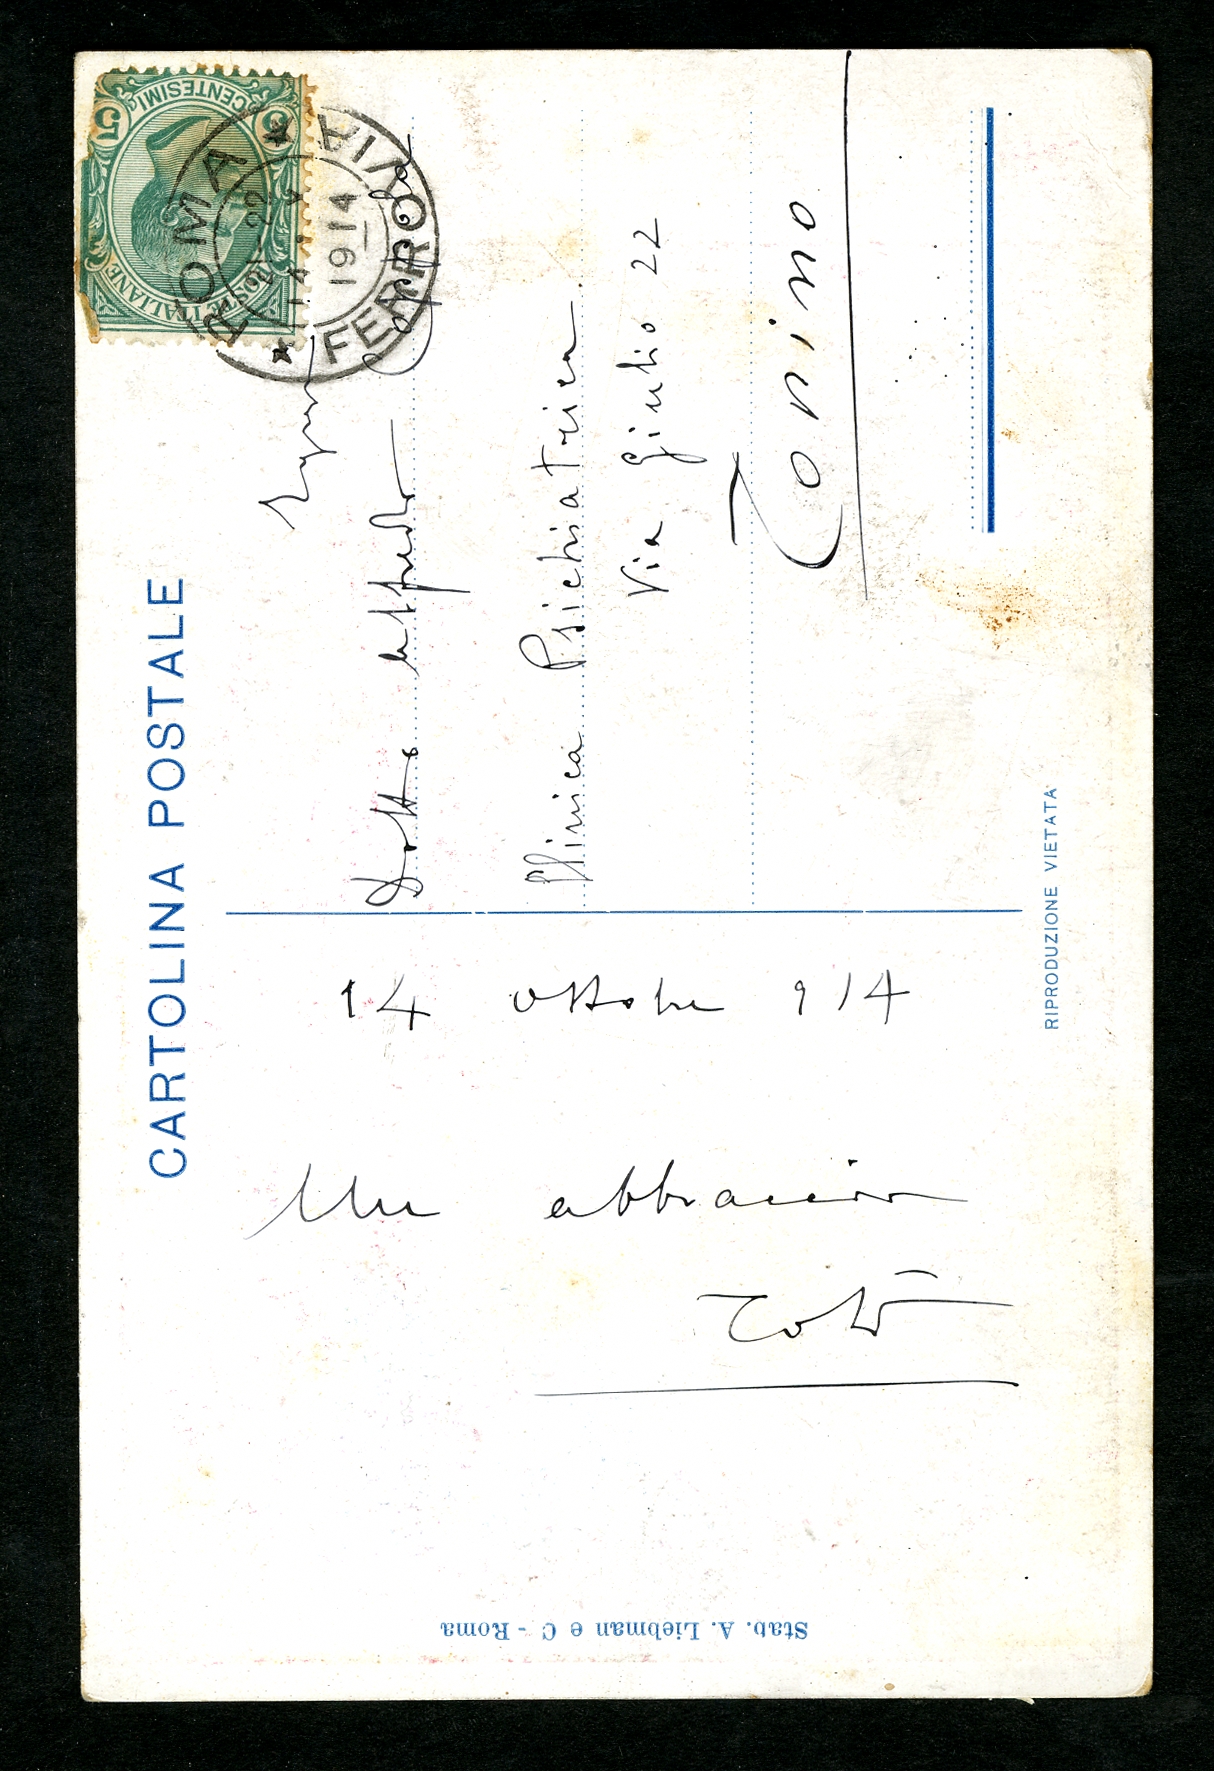 CARTOLINA POSTALE
14 ottobre 914
Un abbraccio
Totò
Dotto Alfredo Coppola
Clinica Psichiatrica
Via Giulio 22
Torino
CENTESIMI
5 5
POSTE ITALIANE
ROMA
FERROVIA
1914
RIPRODUZIONE VIETATA
Stab. A. Liebman e C - Roma